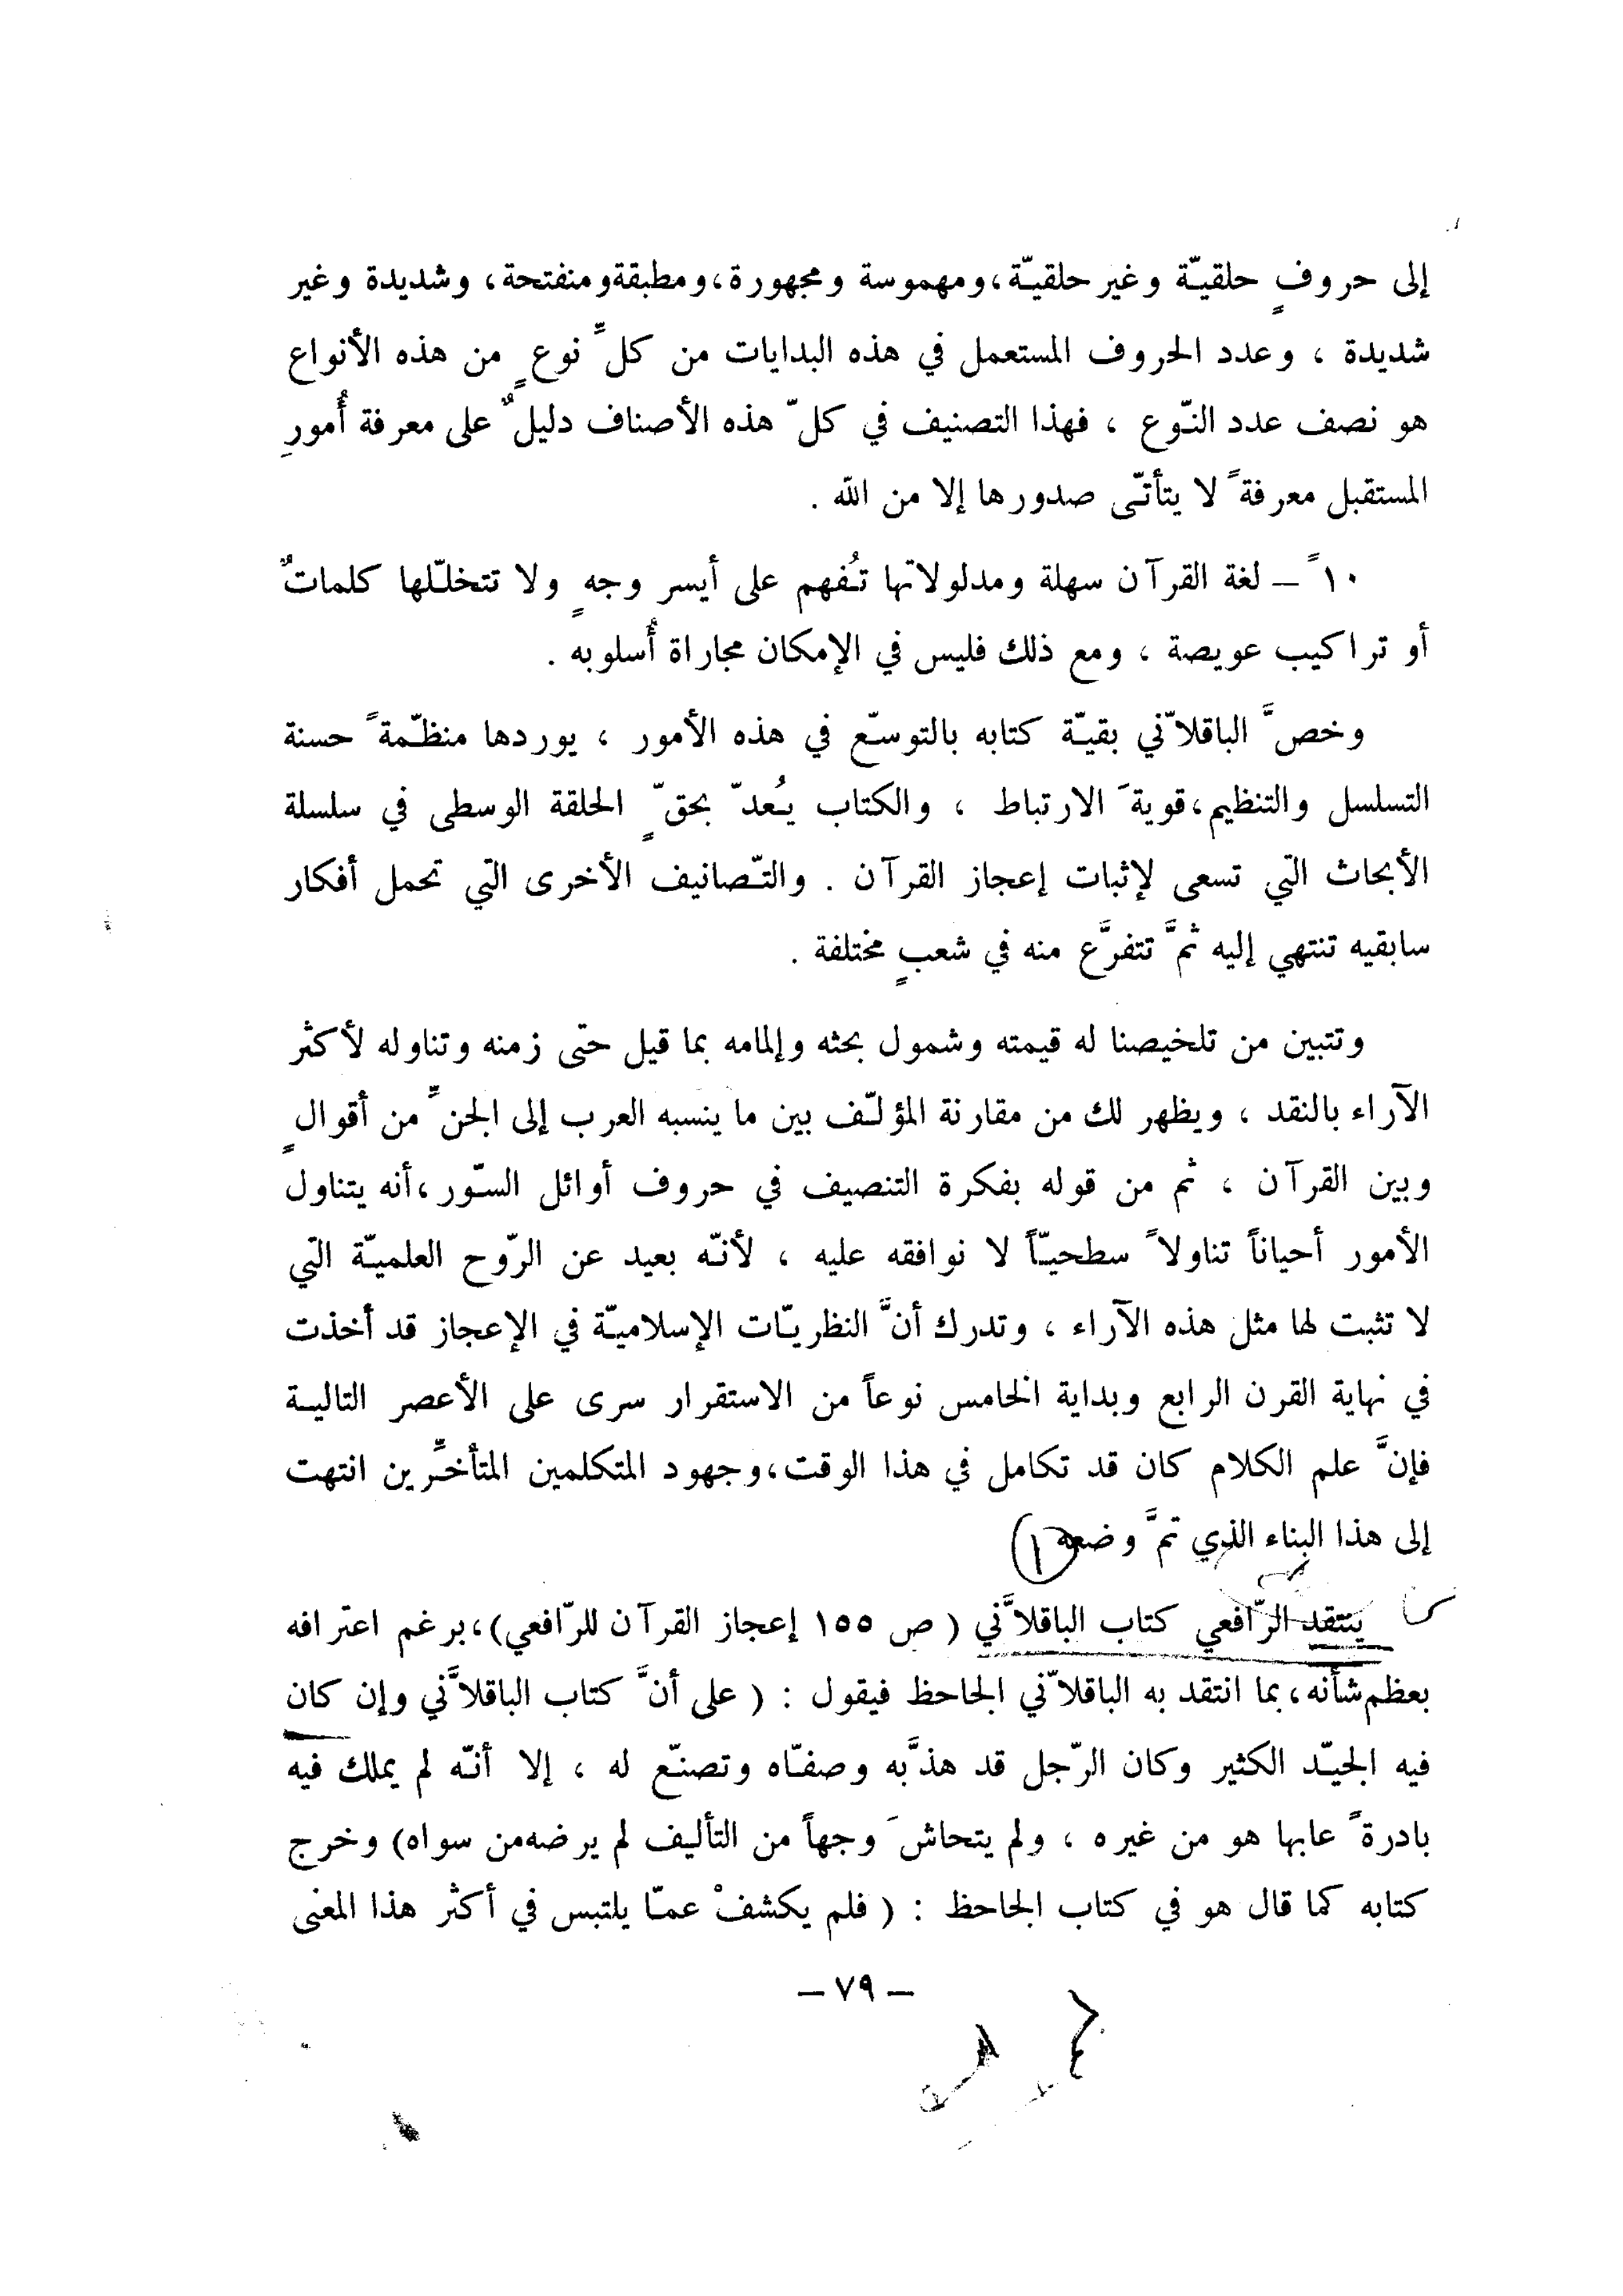 إلى حروفٍ حلقيّة وغير حلقيّة، ومهموسة ومجهورة، ومطبقة ومنفتحة، وشديدة وغير
شديدة ، وعدد الحروف المستعمل في هذه البدايات من كلِّ نوعٍ من هذه الأنواع
هو نصف عدد النّوع ، فهذا التصنيف في كلّ هذه الأصناف دليلٌ على معرفة أُمورِ
المستقبل معرفةً لا يتأتّى صدورها إلا من الله .
١٠ً – لغة القرآن سهلة ومدلولاتها تُفهم على أيسر وجهٍ ولا تتخلّلها كلماتٌ
أو تراكيب عويصة ، ومع ذلك فليس في الإمكان مجاراة أُسلوبه .
وخصَّ الباقلاّني بقيّة كتابه بالتوسّع في هذه الأمور ، يوردها منظّمةً حسنة
التسلسل والتنظيم، قويةَ الارتباط ، والكتاب يُعدّ بحقٍّ الحلقة الوسطى في سلسلة
الأبحاث التي تسعى لإثبات إعجاز القرآن . والتّصانيف الأخرى التي تحمل أفكار
سابقيه تنتهي إليه ثمَّ تتفرَّع منه في شعبٍ مختلفة .
وتتبين من تلخيصنا له قيمته وشمول بحثه وإلمامه بما قيل حتى زمنه وتناوله لأكثر
الآراء بالنقد ، ويظهر لك من مقارنة المؤلّف بين ما ينسبه العرب إلى الجنِّ من أقوالٍ
وبين القرآن ، ثم من قوله بفكرة التنصيف في حروف أوائل السّور، أنه يتناول
الأمور أحياناً تناولاً سطحيّاً لا نوافقه عليه ، لأنّه بعيد عن الرّوح العلميّة التي
لا تثبت لها مثل هذه الآراء ، وتدرك أنَّ النظريّات الإسلاميّة في الإعجاز قد أخذت
في نهاية القرن الرابع وبداية الخامس نوعاً من الاستقرار سرى على الأعصر التالية
فإنَّ علم الكلام كان قد تكامل في هذا الوقت، وجهود المتكلمين المتأخّرين انتهت
إلى هذا البناء الذي تمَّ وضعه ١
ينتقد الرّافعي كتاب الباقلاَّني ( ص ١٥٥ إعجاز القرآن للرّافعي)، برغم اعترافه
بعظم شأنه، بما انتقد به الباقلاّني الجاحظ فيقول : ( على أنَّ كتاب الباقلاَّني وإن كان
فيه الجيّد الكثير وكان الرّجل قد هذَّبه وصفّاه وتصنّع له ، إلا أنّه لم يملك فيه
بادرةً عابها هو من غيره ، ولم يتحاشَ وجهاً من التأليف لم يرضه من سواه) وخرج
كتابه كما قال هو في كتاب الجاحظ : ( فلم يكشفْ عمّا يلتبس في أكثر هذا المعنى
– ٧٩ –